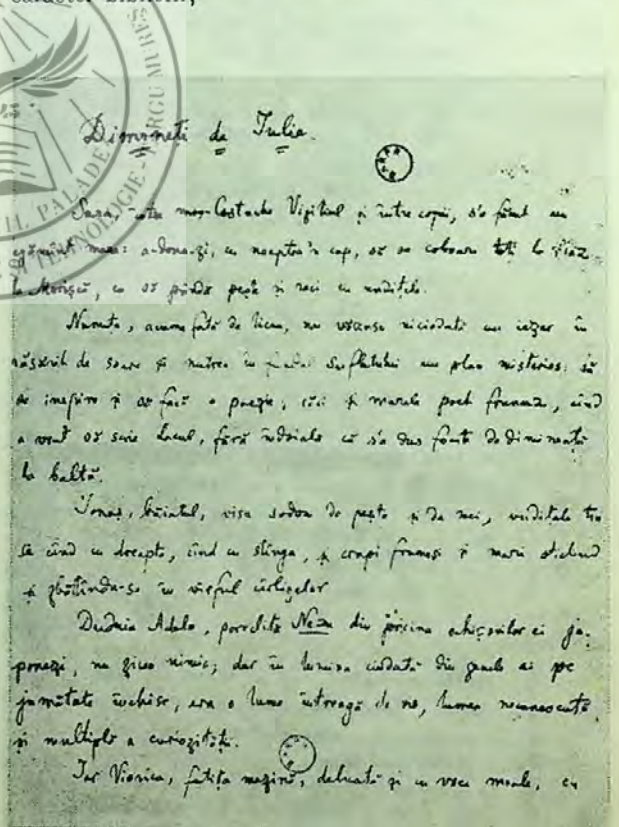 Dimineți de Iulie.
Sara, între moș-Costache Vizitiul și între copii, s'a făcut un
mare: a-doua-zi, cu noaptea'n cap, să se coboare toți la iaz
la Morișcă, ca să prindă pește și raci cu undițele.
Nanuța, acume fată de liceu, nu văzuse niciodată un iezer în
răsărit de soare și nutrea în fundul sufletului un plan misterios: să
se inspire și să facă o poezie; căci și marele poet francez, cînd
a vrut să scrie Lacul, fără îndoială că s'a dus foarte dedimineață
la baltă.
Ionaș, băiatul, visa de pește și de raci, undițele
cînd cu dreapta, cînd cu stînga, și crapi frumoși și mari sticlind
și zbătîndu-se în vîrful cîrligelor
Duduia Adela, poreclită din pricina ochișorilor ei ja-
ponezi, nu zicea nimic; dar în lumina ciudată din genele ei pe
jumătate închise, era o lume întreagă de vis, lumea necunoscută
și multiplă a curiozității.
Iar Viorica, fetița mezină, delicată și cu voce moale, cu